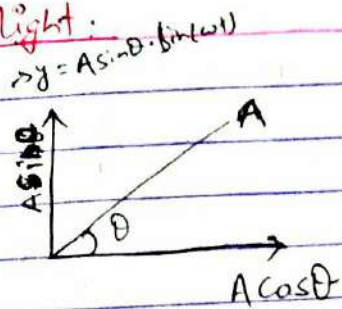 light.
→ y = A sinθ. sin(ωt)
A
A Sinθ
θ
A cosθ